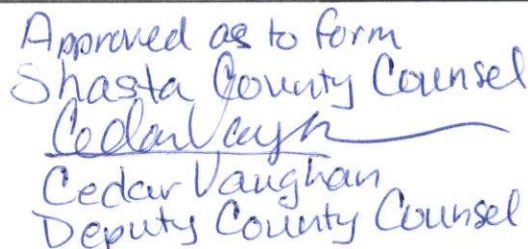 Approved as to form
Shasta County Counsel
Cedar Vaugh
Cedar Vaughan
Deputy County Counsel